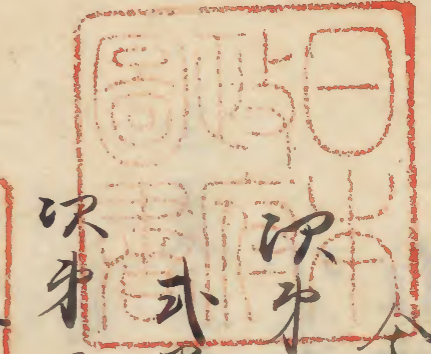 日本
政府
圖書
次第
弐
次第